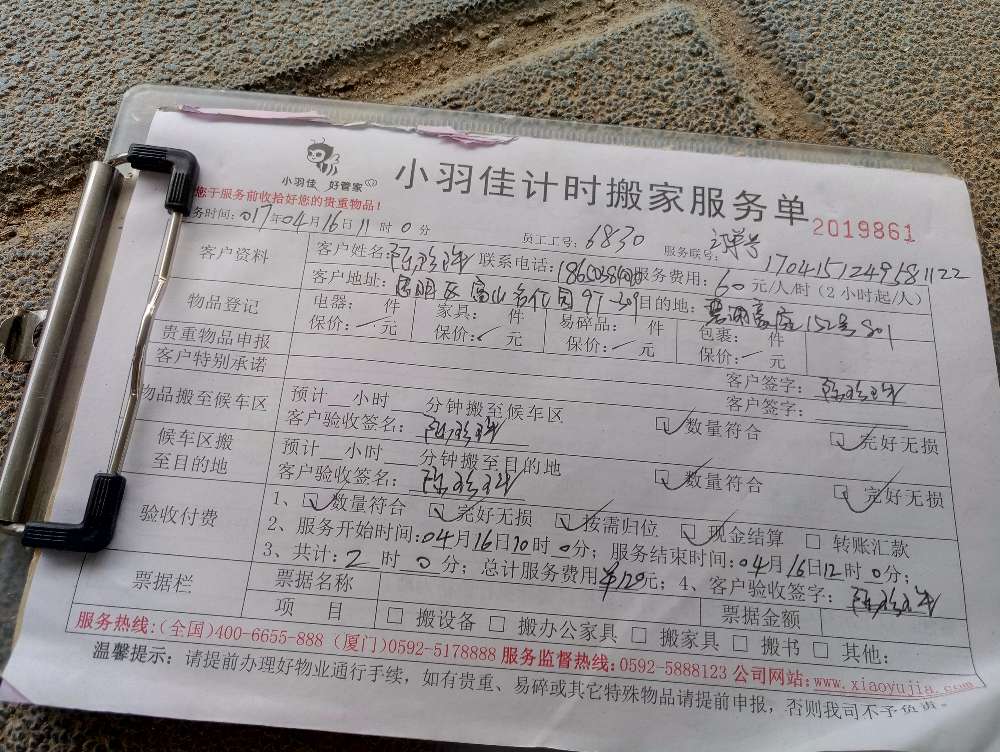 小羽佳 好管家
小羽佳计时搬家服务单
2019861
您于服务前收拾好您的贵重物品！
务时间：017年04月16日11时0分 员工工号：6830 服务联号：1704151249581122
客户资料
客户姓名： 联系电话： 服务费用：60元/人/时（2小时起/人）
客户地址： 97-309 目的地： 152号801
物品登记
电器： 件 家具： 件 易碎品： 件 包裹： 件
保价： 元 保价： 元 保价： 元 保价： 元
贵重物品申报
客户签字：
客户特别承诺
客户签字：
物品搬至候车区
预计 小时 分钟搬至候车区
客户验收签名： ☑数量符合 ☑完好无损
候车区搬至目的地
预计 小时 分钟搬至目的地
客户验收签名： ☑数量符合 ☑完好无损
验收付费
1、☑数量符合 ☑完好无损 ☑按需归位 ☑现金结算 □转账汇款
2、服务开始时间：04月16日10时0分；服务结束时间：04月16日12时0分；
3、共计：2时0分；总计服务费用¥120元；4、客户验收签字：
票据栏
票据名称 票据金额
项 目 □搬设备 □搬办公家具 □搬家具 □搬书 □其他：
服务热线：（全国）400-6655-888（厦门）0592-5178888 服务监督热线：0592-5888123 公司网站：www.xiaoyujia.com
温馨提示：请提前办理好物业通行手续，如有贵重、易碎或其它特殊物品请提前申报，否则我司不予负责。